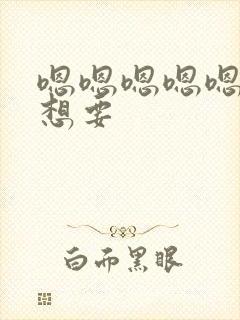 嗯嗯嗯嗯嗯
想要
白而黑眼